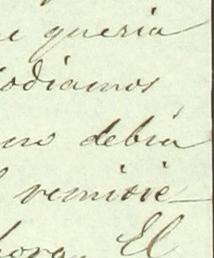 e queria
odiamos
no debia
remitie-
hora. El